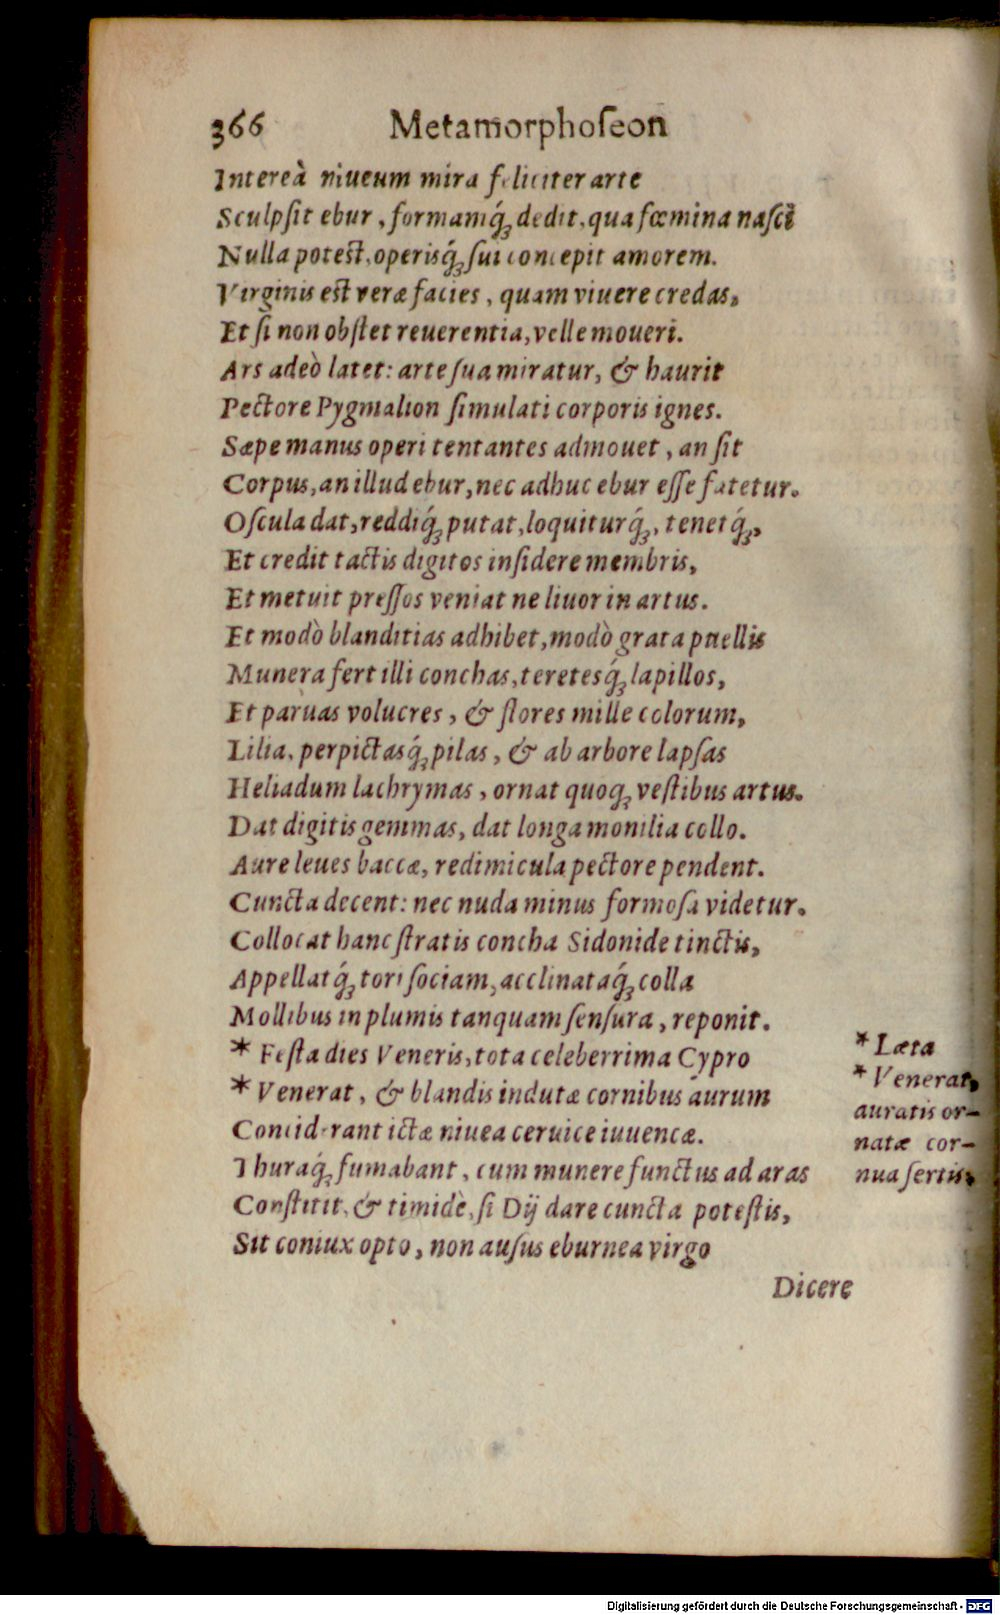 366 Metamorphoſeon
Intereà niueum mira feliciter arte
Sculpſit ebur, formamq́ꝫ dedit, qua fœmina naſci
Nulla poteſt, operisq́ꝫ ſui concepit amorem.
Virginis eſt veræ facies, quam viuere credas,
Et ſi non obſtet reuerentia, velle moueri.
Ars adeò latet: arte ſua miratur, & haurit
Pectore Pygmalion ſimulati corporis ignes.
Sæpe manus operi tentantes admouet, an ſit
Corpus, an illud ebur, nec adhuc ebur eſſe fatetur.
Oſcula dat, reddiq́ꝫ putat, loquiturq́ꝫ, tenetq́ꝫ,
Et credit tactis digitos inſidere membris,
Et metuit preſſos veniat ne liuor in artus.
Et modò blanditias adhibet, modò grata puellis
Munera fert illi conchas, teretesq́ꝫ lapillos,
Et paruas volucres, & flores mille colorum,
Lilia, perpictasq́ꝫ pilas, & ab arbore lapſas
Heliadum lachrymas, ornat quoqꝫ veſtibus artus.
Dat digitis gemmas, dat longa monilia collo.
Aure leues baccæ, redimicula pectore pendent.
Cuncta decent: nec nuda minus formoſa videtur.
Collocat hanc ſtratis concha Sidonide tinctis,
Appellatq́ꝫ tori ſociam, acclinataq́ꝫ colla
Mollibus in plumis tanquam ſenſura, reponit.
* Feſta dies Veneris, tota celeberrima Cypro
* Venerat, & blandis indutæ cornibus aurum
Conciderant ictæ niuea ceruice iuuencæ.
Thuraq́ꝫ fumabant, cum munere functus ad aras
Conſtitit, & timidè, ſi Dij dare cuncta poteſtis,
Sit coniux opto, non auſus eburnea virgo
Dicere
* Læta
* Venerat,
auratis or-
natæ cor-
nua ſertis.
Digitalisierung gefördert durch die Deutsche Forschungsgemeinschaft - DFG